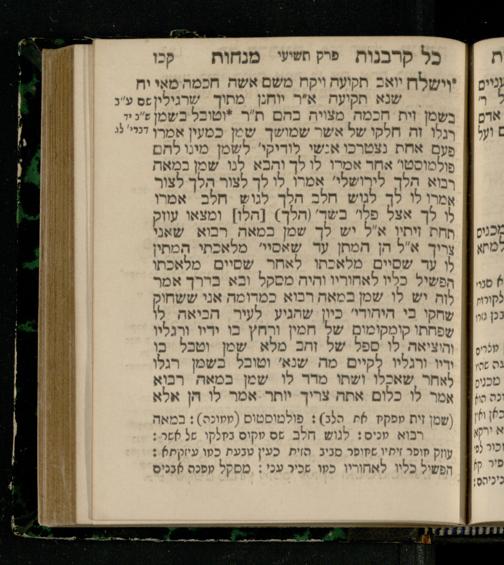 כל קרבנות פרק תשיעי מנחות קכו
*וישלח יואב תקועה ויקח משם אשה חכמה מאי יח
שנא תקועה א״ר יוחנן מתוך שרגילין
שם ע״ב
בשמן זית חכמה מצויה בהם ת״ר *וטובל בשמן
רגלו זה חלקו של אשר שמושך שמן כמעין אמרו
פעם אחת נצטרכו אנשי לודיקי׳ לשמן מינו להם
פולמוסטו׳ אחד אמרו לו לך והבא לנו שמן במאה
רבוא הלך לירושלי׳ אמרו לו לך לצור הלך לצור
אמרו לו לך לגוש חלב הלך לגוש חלב אמרו
לו לך אצל פלו׳ בשד׳ (הלך) [הלז] ומצאו עוזק
תחת זיתיו א״ל יש לך שמן במאה רבוא שאני
צריך א״ל הן המתן עד שאסיי׳ מלאכתי המתין
לו עד שסיים מלאכתו לאחר שסיים מלאכתו
הפשיל כליו לאחוריו והיה מסקל ובא בדרך אמר
לזה יש לו שמן במאה רבוא כמדומה אני ששחוק
שחקו בי היהודי׳ כיון שהגיע לעיר הביאה לו
שפחתו קומקומום של חמין ורחץ בו ידיו ורגליו
והוציאה לו ספל של זהב מלא שמן וטבל בו
ידיו ורגליו לקיים מה שנא׳ וטובל בשמן רגלו
לאחר שאכלו ושתו מדד לו שמן במאה רבוא
אמר לו כלום אתה צריך יותר אמר לו הן אלא
(שמן זית מפקיח את הלב): פולמוסטוס (ממונה): במאה
רבוא מנים: לגוש חלב שם מקום בחלקו של אשר:
עוזק חופר זיתיו שחופר סביב הזית כעין טבעת כמו עיזקתא:
הפשיל כליו לאחוריו כמו שכיר עני: מסקל מפנה אבנים